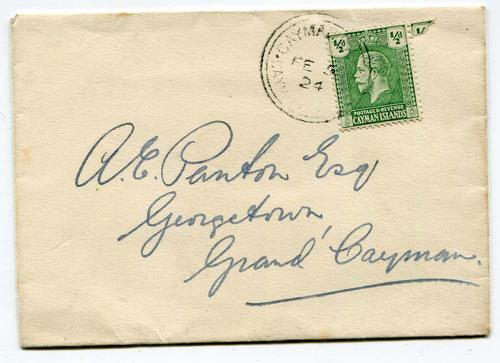 CAYMA
DE
24
½d ½d
POSTAGE & REVENUE
CAYMAN ISLANDS
A.E. Panton Esq
Georgetown,
Grand Cayman.